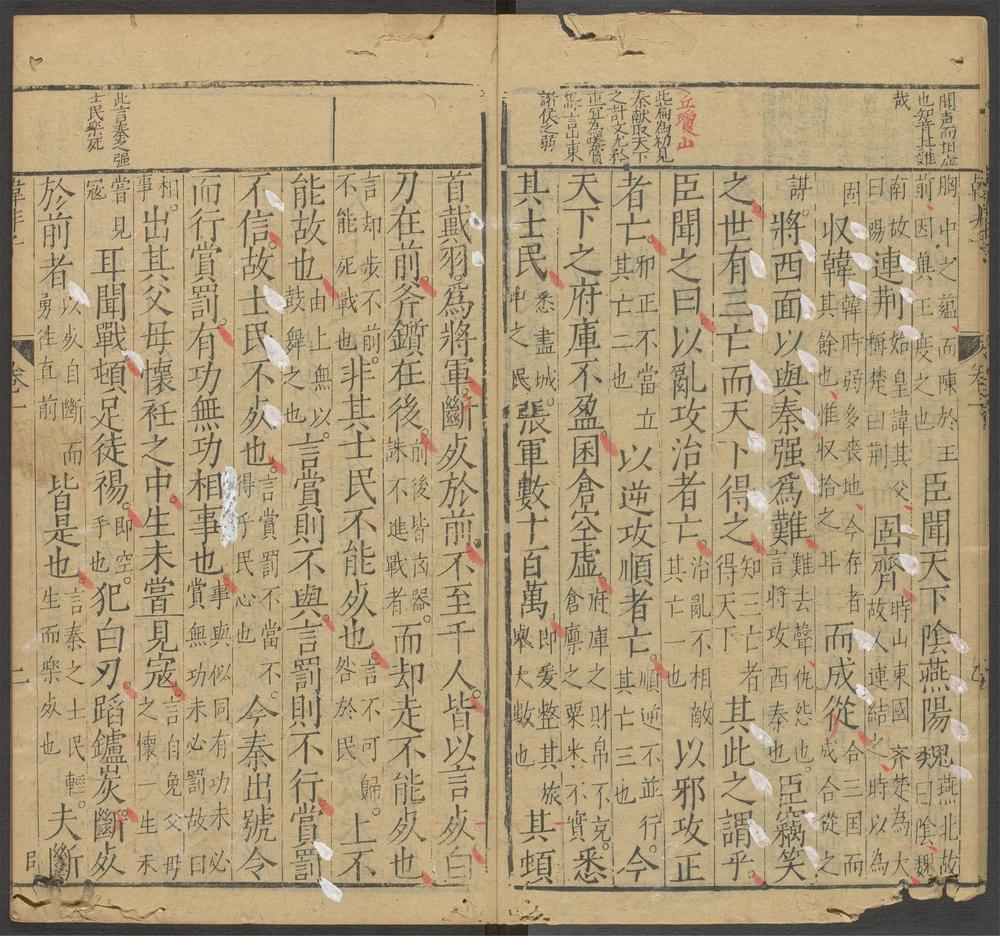 胸中之蘊而陳於王前因與王度之也臣聞天下陰燕陽魏燕北故曰陰魏
南故曰陽連荊始皇諱其父稱楚曰荊固齊時山東國齊楚為大故人連結之時以為
固收韓韓時弱多喪地今存者其餘也惟收拾之耳而成從合三国而成合從之
講將西面以與秦强爲難難去聲仇怨也言將攻西秦也臣竊笑
之世有三亡而天下得之知三亡者得天下其此之謂乎
臣聞之曰以亂攻治者亡治亂不相敵其亡也以邪攻正
者亡邪正不當立其亡二也以逆攻順者亡順逆不並行其亡三也今
天下之府庫不盈囷倉空虛府庫之財帛不充倉廩之粟米不實悉
其士民悉盡城中之民張軍數十百萬即爰整其旅衆大數也其頓
此篇為初見
秦獻取天下
之計文尤矜
言出東
諸侯之弱
首戴羽爲將軍斷死於前不至千人皆以言死白
刃在前斧鑕在後前後皆凶器誅不進戰者而却走不能死也
言却步不前不能死戰也非其士民不能死也言不可歸咎於民上不
能故也由上無以鼓舞之也言賞則不與言罰則不行賞罰
不信故士民不死也言賞罰不當不得乎民心也今秦出號令
而行賞罰有功無功相事也事與似同有功未必賞無功未必罰故曰
相事出其父母懷衽之中生未嘗見寇言自免父母之懷一生未
嘗見寇耳聞戰頓足徒裼即空乎也犯白刃蹈鑪炭斷死
於前者以死自斷而勇徃直前皆是也言秦之士民輕生而樂死也夫斷
此言秦之强
士民樂死